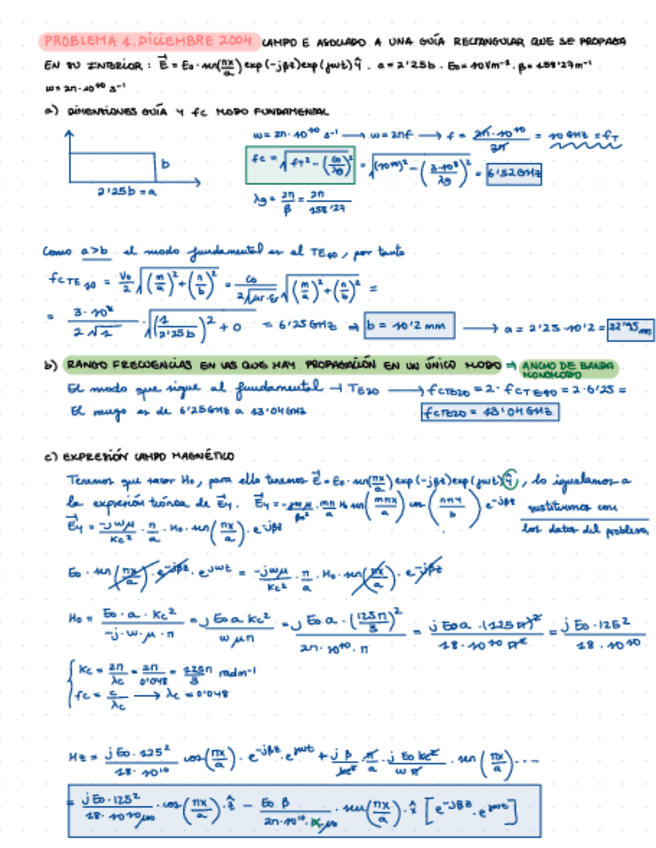 PROBLEMA 1. DICIEMBRE 2004 CAMPO E ASOCIADO A UNA GUÍA RECTANGULAR QUE SE PROPAGA
EN SU INTERIOR: E⃗ = E₀·sen(πx/a) exp(-jβz) exp(jωt) ŷ. a = 2'25b. E₀ = 10Vm⁻¹. β = 158'27m⁻¹
ω = 2π·10¹⁰ s⁻¹
a) DIMENSIONES GUÍA Y fc MODO FUNDAMENTAL
ω = 2π·10¹⁰ s⁻¹ → ω = 2πf → f = 2π·10¹⁰/2π = 10 GHz = fT
b
fc = √(fT² - (c₀/λg)²) = √((10¹⁰)² - (3·10⁸/λg)²) = 6'52GHz
2'25b = a
λg = 2π/β = 2π/158'27
Como a>b el modo fundamental es el TE₁₀, por tanto
fcTE₁₀ = V₀/2 √((m/a)² + (n/b)²) = c₀/2√μr·εr √((m/a)² + (n/b)²) =
= 3·10⁸/2√1 · √((1/2'25b)² + 0) = 6'25GHz ⇒ b = 10'2 mm → a = 2'25·10'2 = 22'95 mm
b) RANGO FRECUENCIAS EN LAS QUE HAY PROPAGACIÓN EN UN ÚNICO MODO ⇒ ANCHO DE BANDA
MONOMODO
El modo que sigue al fundamental → TE20 → fcTE20 = 2·fcTE10 = 2·6'25 =
El rango es de 6'25GHz a 13'04GHz fcTE20 = 13'04GHz
c) EXPRESIÓN CAMPO MAGNÉTICO
Tenemos que sacar H₀, para ello tenemos E⃗ = E₀·sen(πx/a) exp(-jβz) exp(jωt) ŷ, lo igualamos a
la expresión teórica de E⃗y. E⃗y = -jωμ/kc² · mπ/a H₀ sen(mπx/a) cos(nπy/b) e⁻ʲᵝᶻ sustituimos con
E⃗y = -jωμ/kc² · π/a · H₀ · sen(πx/a) · e⁻ʲᵝᶻ los datos del problema
E₀ · sen(πx/a) · e⁻ʲᵝᶻ · eʲωᵗ = -jωμ/kc² · π/a · H₀ · sen(πx/a) · e⁻ʲᵝᶻ
H₀ = E₀·a·kc²/-j·ω·μ·π = j E₀ a kc²/ωμπ = j E₀ a · (125π/3)²/2π·10¹⁰·π = j E₀ a · (125π)²/18·10¹⁰ π² = j E₀ · 125²/18·10¹⁰
kc = 2π/λc = 2π/0'048 = 125π/3 radm⁻¹
fc = c/λc → λc = 0'048
Hz = j E₀·125²/18·10¹⁰ cos(πx/a) · e⁻ʲᵝᶻ · eʲωᵗ + jβ/kc² · π/a · j E₀ kc²/ωπ · sen(πx/a) ...
= j E₀·125²/18·10¹⁰μ₀ · cos(πx/a) · ẑ - E₀ β/2π·10¹⁰·μ₀ · sen(πx/a) · x̂ [e⁻ʲᵝᶻ · eʲωᵗ]